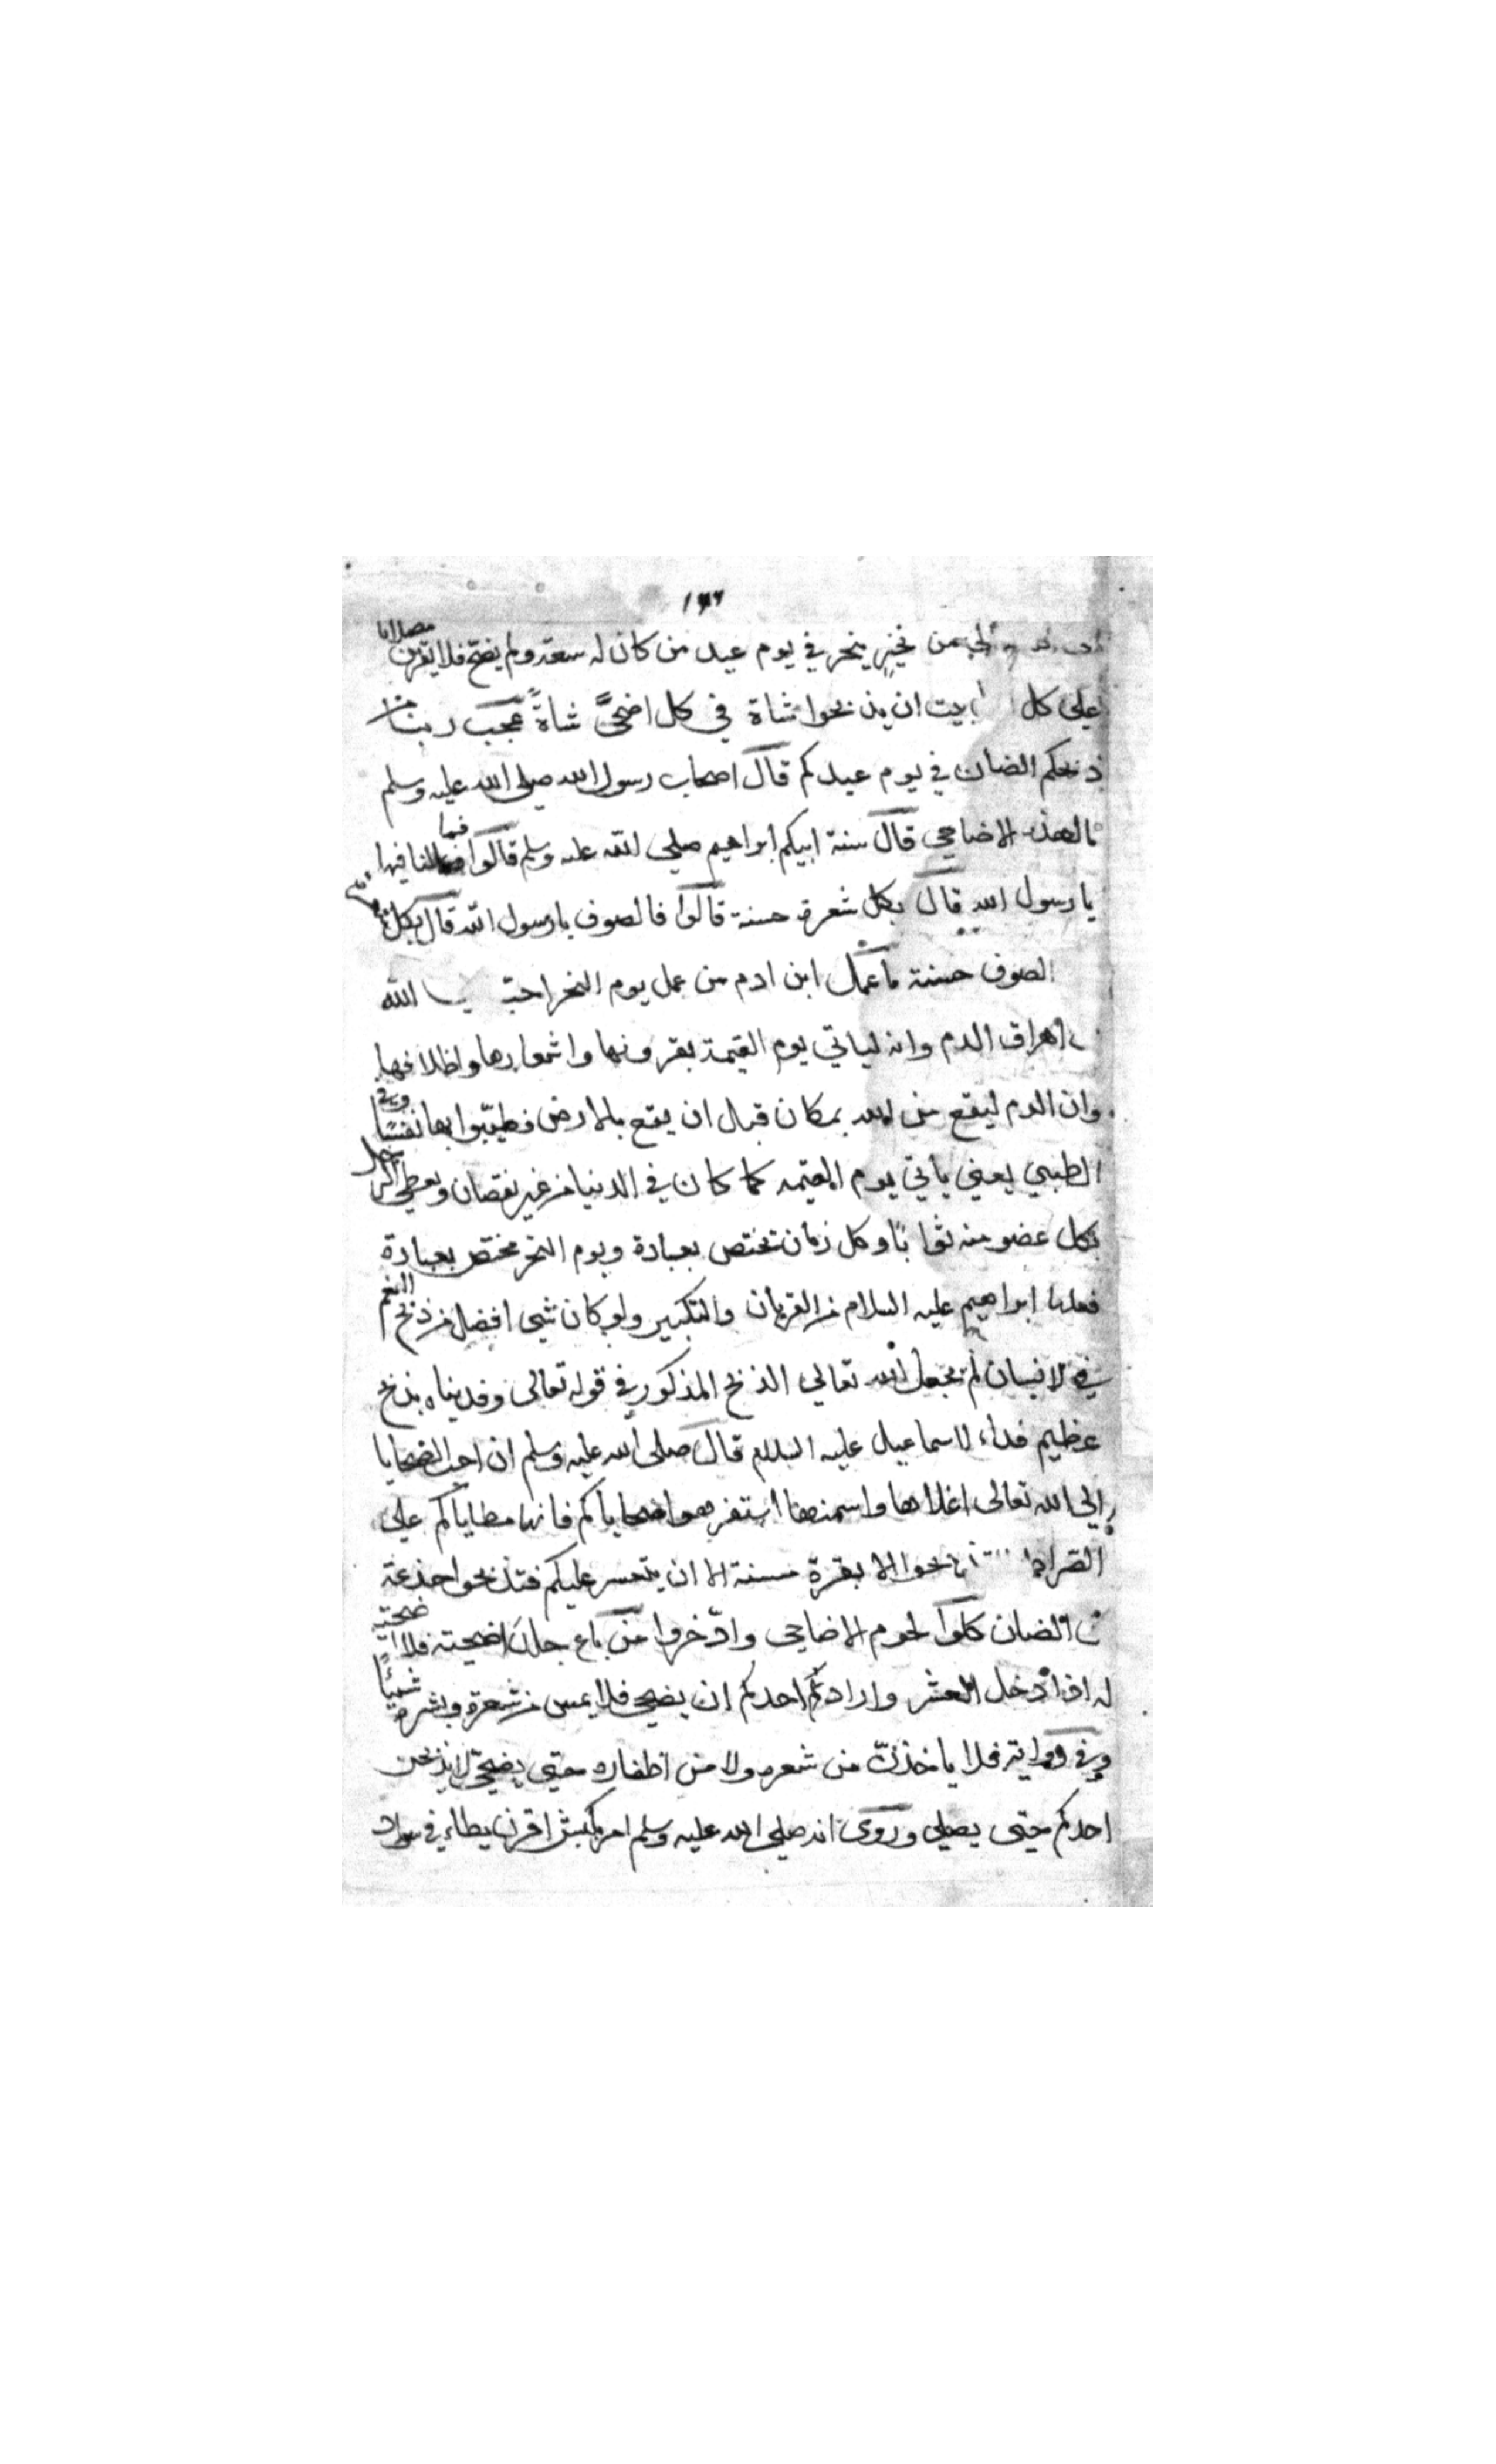 ١٣٦
من نحير ينحر في يوم عيد من كان له سعة ولم يضح فلا يقربن مصلانا
على كل بيت ان يذبحوا شاة في كل اضحى شاة عجب ربنا من
ذبحكم الضان في يوم عيدكم قال اصحاب رسول الله صلى الله عليه وسلم
ما هذه الاضاحي قال سنة ابيكم ابراهيم صلى الله عليه وسلم قالوا فما لنا فيها
يا رسول الله قال بكل شعرة حسنة قالوا فالصوف يا رسول الله قال بكل شعرة من
الصوف حسنة ما عمل ابن ادم من عمل يوم النحر احب الله
من اهراق الدم وانه لياتي يوم القيمة بقرونها واشعارها واظلافها
وان الدم ليقع من الله بمكان قبل ان يقع بالارض فطيبوا بها نفسا وفي
الطيبي يعني ياتي يوم القيمه كما كان في الدنيا من غير نقصان ويعطى الرجل
بكل عضو منه ثوابا وكل زمان تختص بعبادة ويوم النحر مختص بعبادة
فعلها ابراهيم عليه السلام من القربان والتكبير ولو كان شيى افضل من ذبح الغنم
في الانسان لم يجعل الله تعالى الذبح المذكور في قوله تعالى وفديناه بذبح
عظيم فداء لاسماعيل عليه السلام قال صلى الله عليه وسلم ان احب الضحايا
الى الله تعالى اغلاها واسمنها استفرهوا ضحاياكم فانها مطاياكم على
الصراط الا بقرة مسنة الا ان يتعسر عليكم فتذبحوا جذعة
من الضان كلوا لحوم الاضاحي وادخروا من باع جلد اضحيته فلا اضحية
له اذا دخل العشر واراد احدكم ان يضحي فلا يمس من شعره وبشره شيئا
وفي رواية فلا ياخذن من شعره ولا من اظفاره حتى يضحي لا يذبحن
احدكم حتى يصلي وروى انه صلى الله عليه وسلم امر بكبش اقرن يطاء في سواد